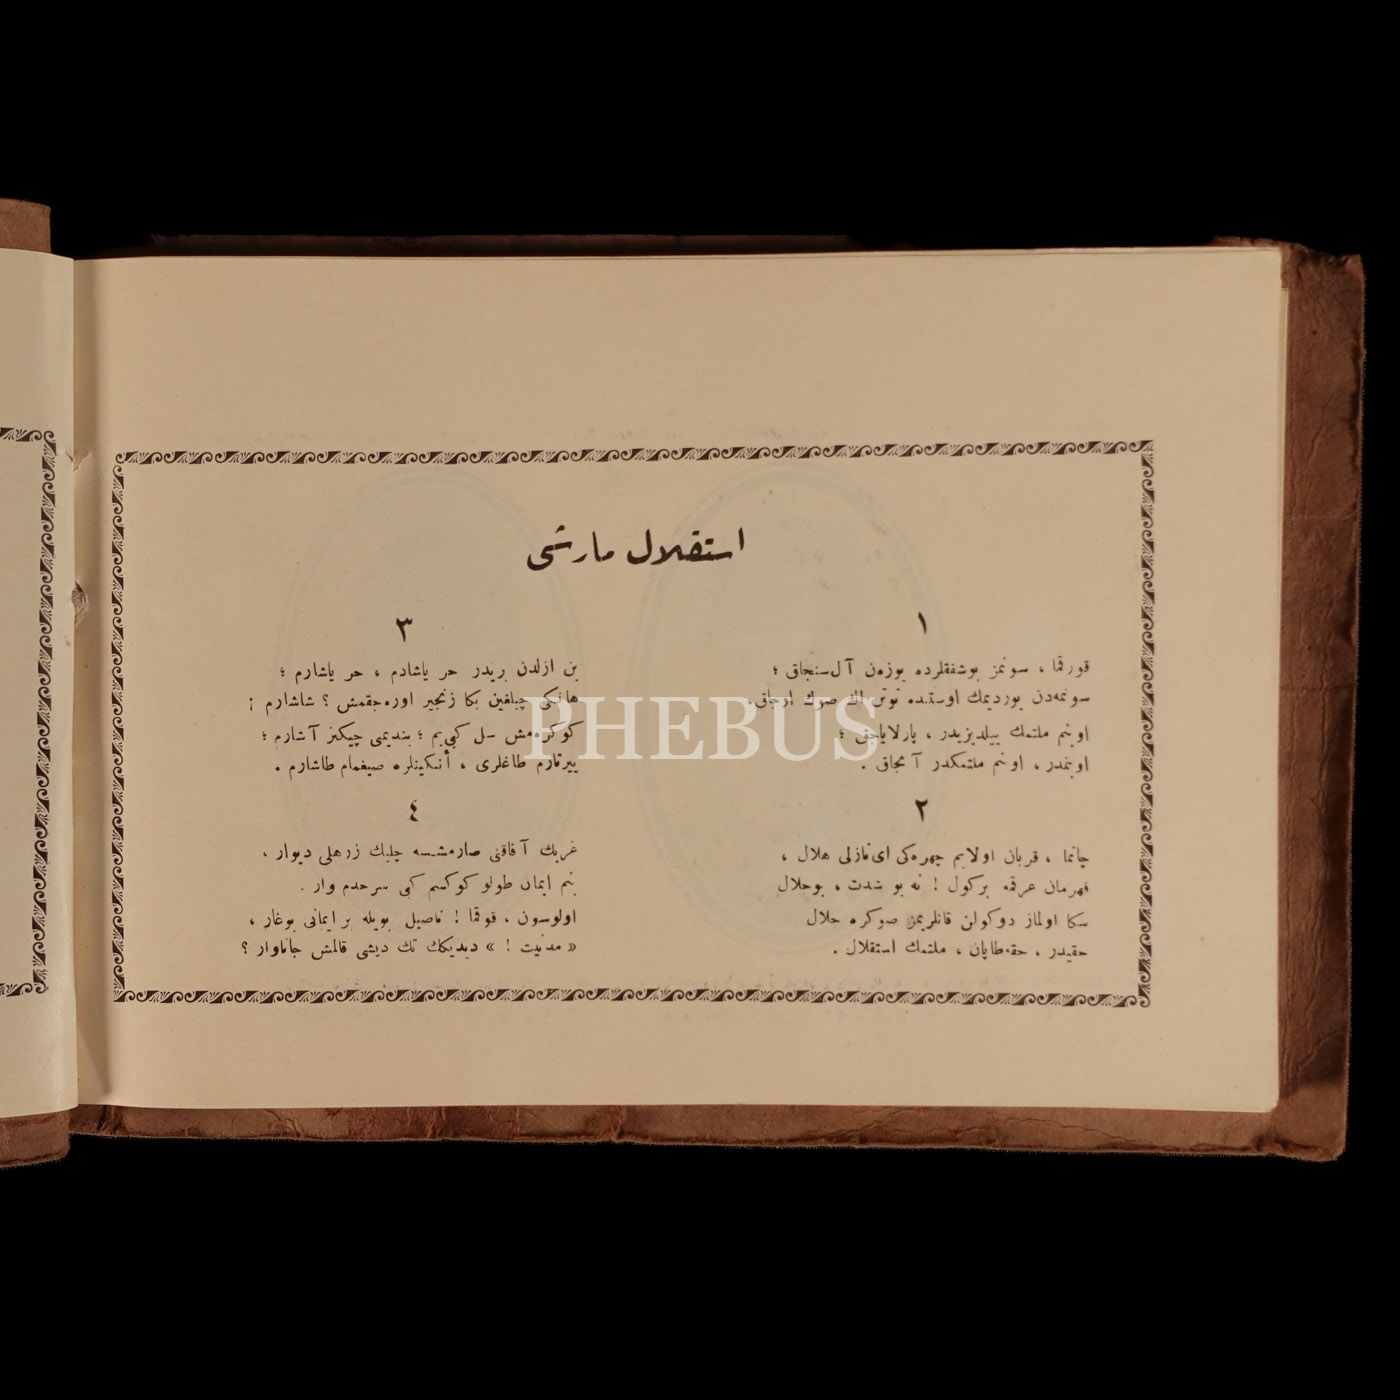 استقلال مارشی
١
قورقما ، سونمز بوشفقلرده یوزەن آل سنجاق ؛
سونمەدن یوردیمك اوستنده توتن اڭ صوك اوجاق،
اوبنم ملتمك ییلدیزیدر ، پارلایاجق ؛
اوبنمدر ، اوبنم ملتمكدر آنجاق .
٢
چاتما ، قربان اولایم چهرەڭی ای نازلی هلال ،
قهرمان عرقمه برگول ! نه بو شدت ، بوجلال
سڭا اولماز دوكولن قانلریمز صوكره حلال
حقیدر ، حقه طاپان ، ملتمك استقلال .
٣
بن ازلدن بریدر حر یاشادم ، حر یاشارم ؛
هانكی چیلغین بكا زنجیر اورەجقمش ؟ شاشارم ؛
كوكرەمش سل كبی یم ؛ بندیمی چیكنر آشارم ؛
ییرتارم طاغلری ، أنكینلره صیغمام طاشارم .
٤
غربك آفاقنی صارمشسه چلیك زرهلی دیوار ،
بنم ایمان طولو كوكسم كبی سرحدم وار .
اولوسون ، قورقما ! ناصیل بویله بر ایمانی بوغار ،
« مدنیت ! » دیدیكك تك دیشی قالمش جاناوار ؟
PHEBUS